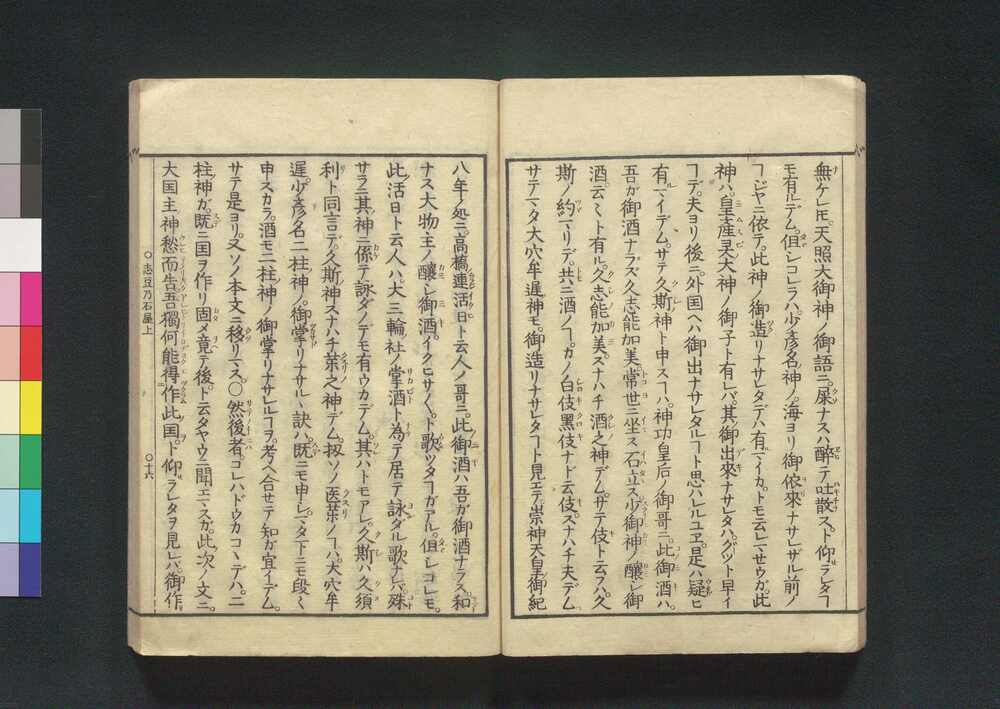 無ケレ𪜈。天照大御神ノ御語ニ。屎ナスハ醉テ吐散ス。ト仰ヲレタヿ
モ有ルデム。但シコレラハ。少彦名神ノ。海ヨリ御依來ナサレザル前ノ
ヿジヤニ依テ。此神ノ御造リナサレタデハ有マイカ。トモ云レマセウガ。此
神ハ。皇産灵大神ノ御子ト有レバ。其御出來ナサレタハ。グツト早イ
ヿデ。夫ヨリ後ニ。外国ヘハ御出ナサレタルヿト思ハレルユヱ。是ハ疑ヒ
有マイデム。サテ久斯ノ神ト申スヿハ。神功皇后ノ御哥ニ。此御酒ハ。
吾ガ御酒ナラズ久志能加美常世ニ坐ス石立ス少御神ノ釀シ御
酒云ミト有ル。久志能加美。スナハチ酒之神デム。サテ伎ト云フハ。久
斯ノ約マリデ。共ニ酒ノヿ。カノ白伎黑伎ナド云伎。スナハチ夫デム
サテマタ大穴牟遅神モ。御造リナサレタヿト見エテ。崇神天皇御紀
八年ノ処ニ。高橋連活日ト云人ノ哥ニ。此御酒ハ吾ガ御酒ナラス。和
ナス大物主ノ釀シ御酒。イクヒサイクヒサ。ト歌ツタヿガアル。但シコレモ。
此活日ト云人ハ。大三輪社ノ掌酒ト為テ居テ。詠ダル歌ナレバ。殊
サラニ其神ニ係テ詠ダノデモ有ウカデム。其ハトモアレ。久斯ハ久須
利ト同言デ。久斯神スナハチ薬之神デム。扨ソノ医薬ノヿハ。大穴牟
遅少彦名二柱神ノ。御掌リナサルヽ訣ハ。既ニモ申シ。マタ下ニモ段ミ
申スカラ。酒モ二柱神ノ御掌リナサレルヿヲ。考ヘ合セテ知ガ宜イデム。
サテ是ヨリ。又ソノ本文ニ移リマス。〇然後者。コレハドウカコヽデハ。二
柱神ガ。既ニ国ヲ作リ固メ竟テ後。ト云タヤウニ聞エマスガ。此次ノ文ニ。
大国主神愁而告吾獨何能得作此国。ト仰ヲレタヲ見レバ。御作
〇志豆乃石屋上
〇十六